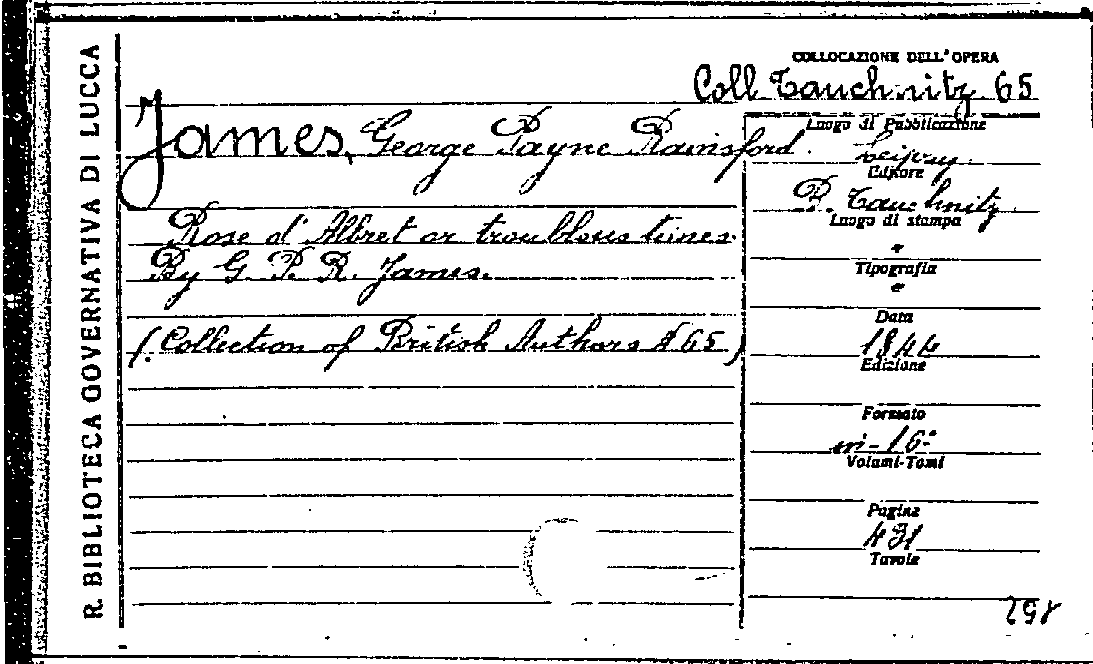 R. BIBLIOTECA GOVERNATIVA DI LUCCA
COLLOCAZIONE DELL'OPERA
Coll. Tauchnitz 65
James, George Payne Rainsford.
Rose d'Albret or troublous times.
By G. P. R. James.
(Collection of British Authors N 65)
Luogo di Pubblicazione
Leipzig
Editore
B. Tauchnitz
Luogo di stampa
"
Tipografia
"
Data
1844
Edizione
Formato
in-16°
Volumi-Tomi
Pagine
431
Tavole